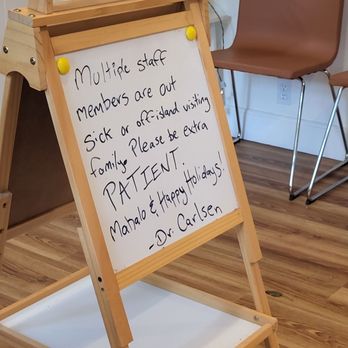 Multiple staff
members are out
sick or off-island visiting
family. Please be extra
PATIENT.
Mahalo & Happy Holidays!
-Dr. Carlsen